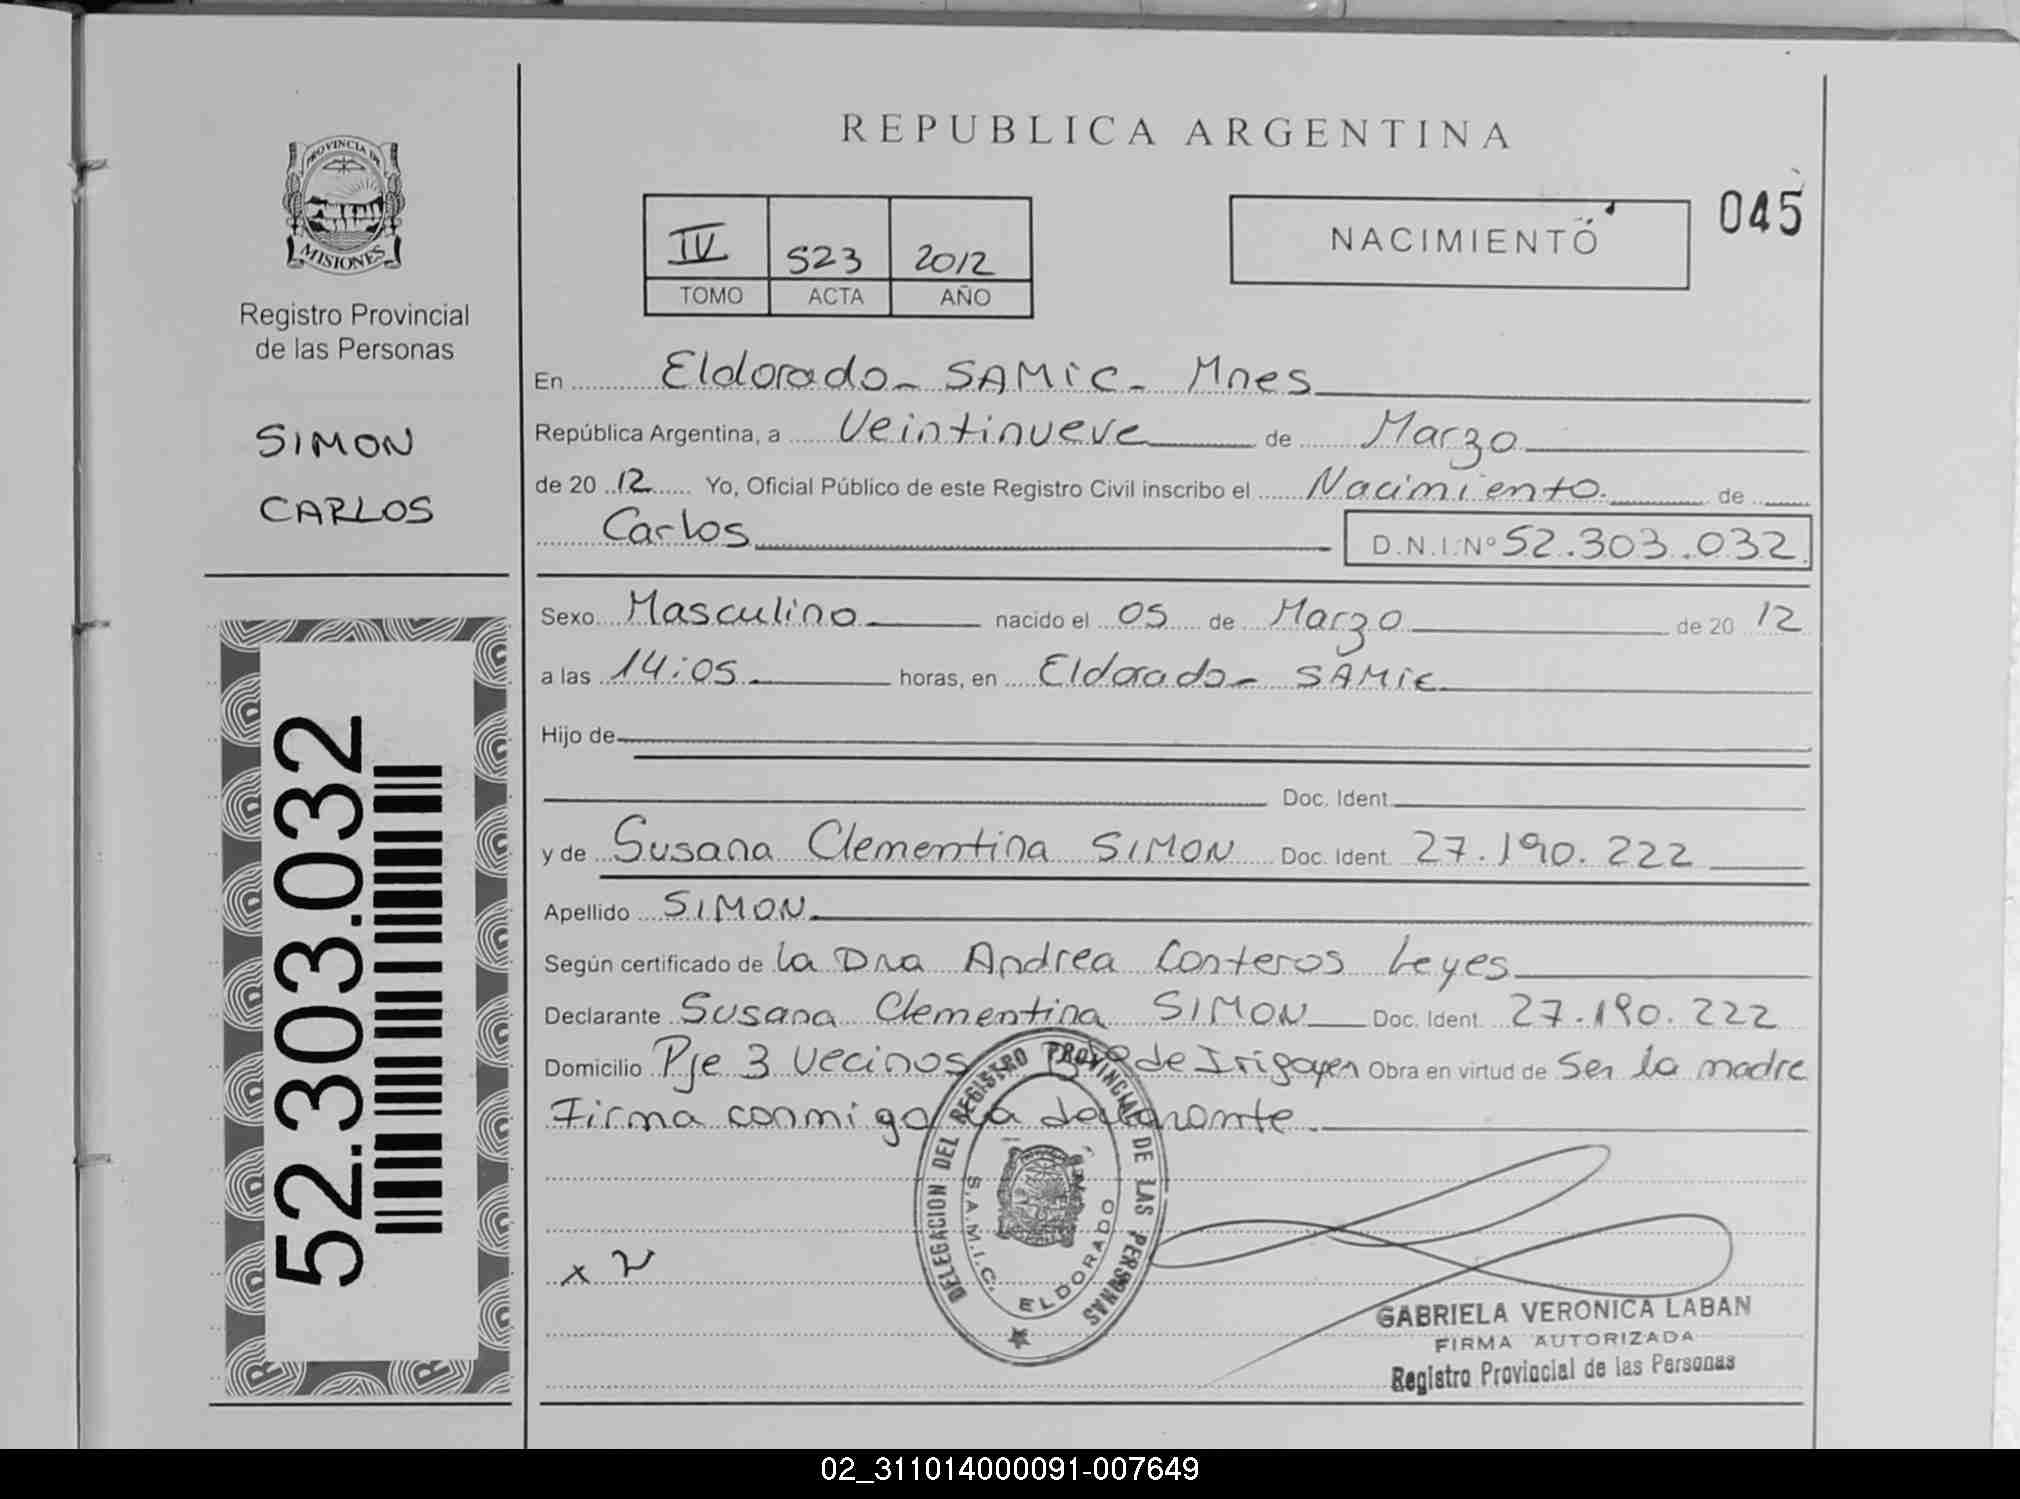 PROVINCIA DE
MISIONES
Registro Provincial
de las Personas
SIMON
CARLOS
52.303.032
REPUBLICA ARGENTINA
IV 523 2012
TOMO ACTA AÑO
NACIMIENTO
045
En Eldorado - SAMIC - Mnes
República Argentina, a Veintinueve de Marzo
de 20 12 Yo, Oficial Público de este Registro Civil inscribo el Nacimiento de
Carlos D.N.I. Nº 52.303.032
Sexo Masculino nacido el 05 de Marzo de 20 12
a las 14:05 horas, en Eldorado - SAMIC
Hijo de
Doc. Ident.
y de Susana Clementina SIMON Doc. Ident. 27.190.222
Apellido SIMON
Según certificado de La Dra Andrea Conteros Leyes
Declarante Susana Clementina SIMON Doc. Ident. 27.190.222
Domicilio Pje 3 Vecinos Bdo de Irigoyen Obra en virtud de Ser la madre
Firma conmigo La declarante
DELEGACION DEL REGISTRO PROVINCIAL DE LAS PERSONAS
S.A.M.I.C. ELDORADO
GABRIELA VERONICA LABAN
FIRMA AUTORIZADA
Registro Provincial de las Personas
02_311014000091-007649